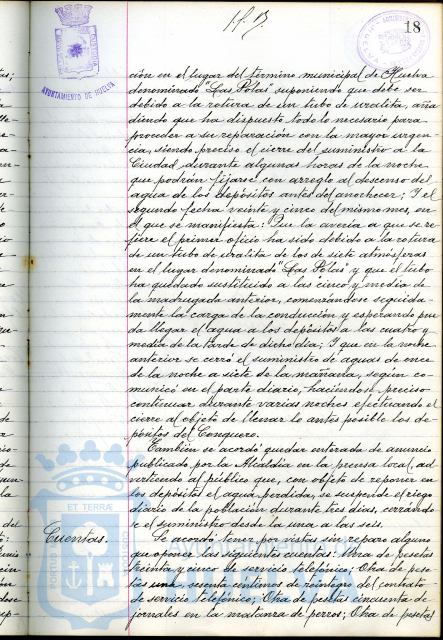 18
AYUNTAMIENTO DE HUELVA
ción en el lugar del término municipal de Huelva
denominado "Las Polas" suponiendo que debe ser
debido a la rotura de un tubo de uralita, aña-
diendo que ha dispuesto todo lo necesario para
proceder a su reparación con la mayor urgen-
cia, siendo preciso el cierre del suministro a la
Ciudad, durante algunas horas de la noche
que podrán fijarse con arreglo al descenso del
agua de los depósitos antes del anochecer; Y el
segundo fecha veinte y cinco del mismo mes, en
el que se manifiesta: Que la avería a que se re-
fiere el primer oficio ha sido debido a la rotura
de un tubo de uralita de los de siete atmósferas
en el lugar denominado "Las Polas" y que el tubo
ha quedado sustituido a las cinco y media de
la madrugada anterior, comenzándose seguida-
mente la carga de la conducción y esperando pue-
da llegar el agua a los depósitos a las cuatro y
media de la tarde de dicho día; Y que en la noche
anterior se cerró el suministro de aguas de once
de la noche a siete de la mañana, según co-
municó en el parte diario, haciéndose preciso
continuar durante varias noches efectuando el
cierre al objeto de llenar lo antes posible los de-
pósitos del Conquero.
También se acordó quedar enterada de anuncio
publicado por la Alcaldía en la prensa local, ad-
virtiendo al público que, con objeto de reponer en
los depósitos el agua perdida, se suspende el riego
diario de la población durante tres días, cerrándo-
se el suministro desde la una a las seis.
Cuentas.
Se acordó tener por vistas sin reparo alguno
que oponer las siguientes cuentas: Una de pesetas
treinta y cinco de servicio telefónico; Otra de pese-
tas una, sesenta céntimos de reintegro del contrato
de servicio telefónico; Otra de pesetas cincuenta de
jornales en la matanza de perros; Otra de pesetas